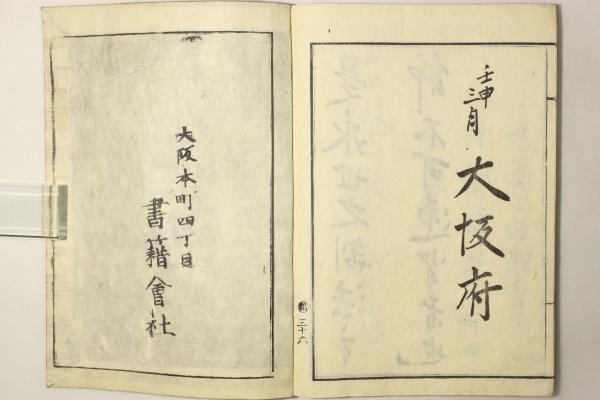 壬申
三月
大阪府
三十六
大阪本町四丁目
書籍會社